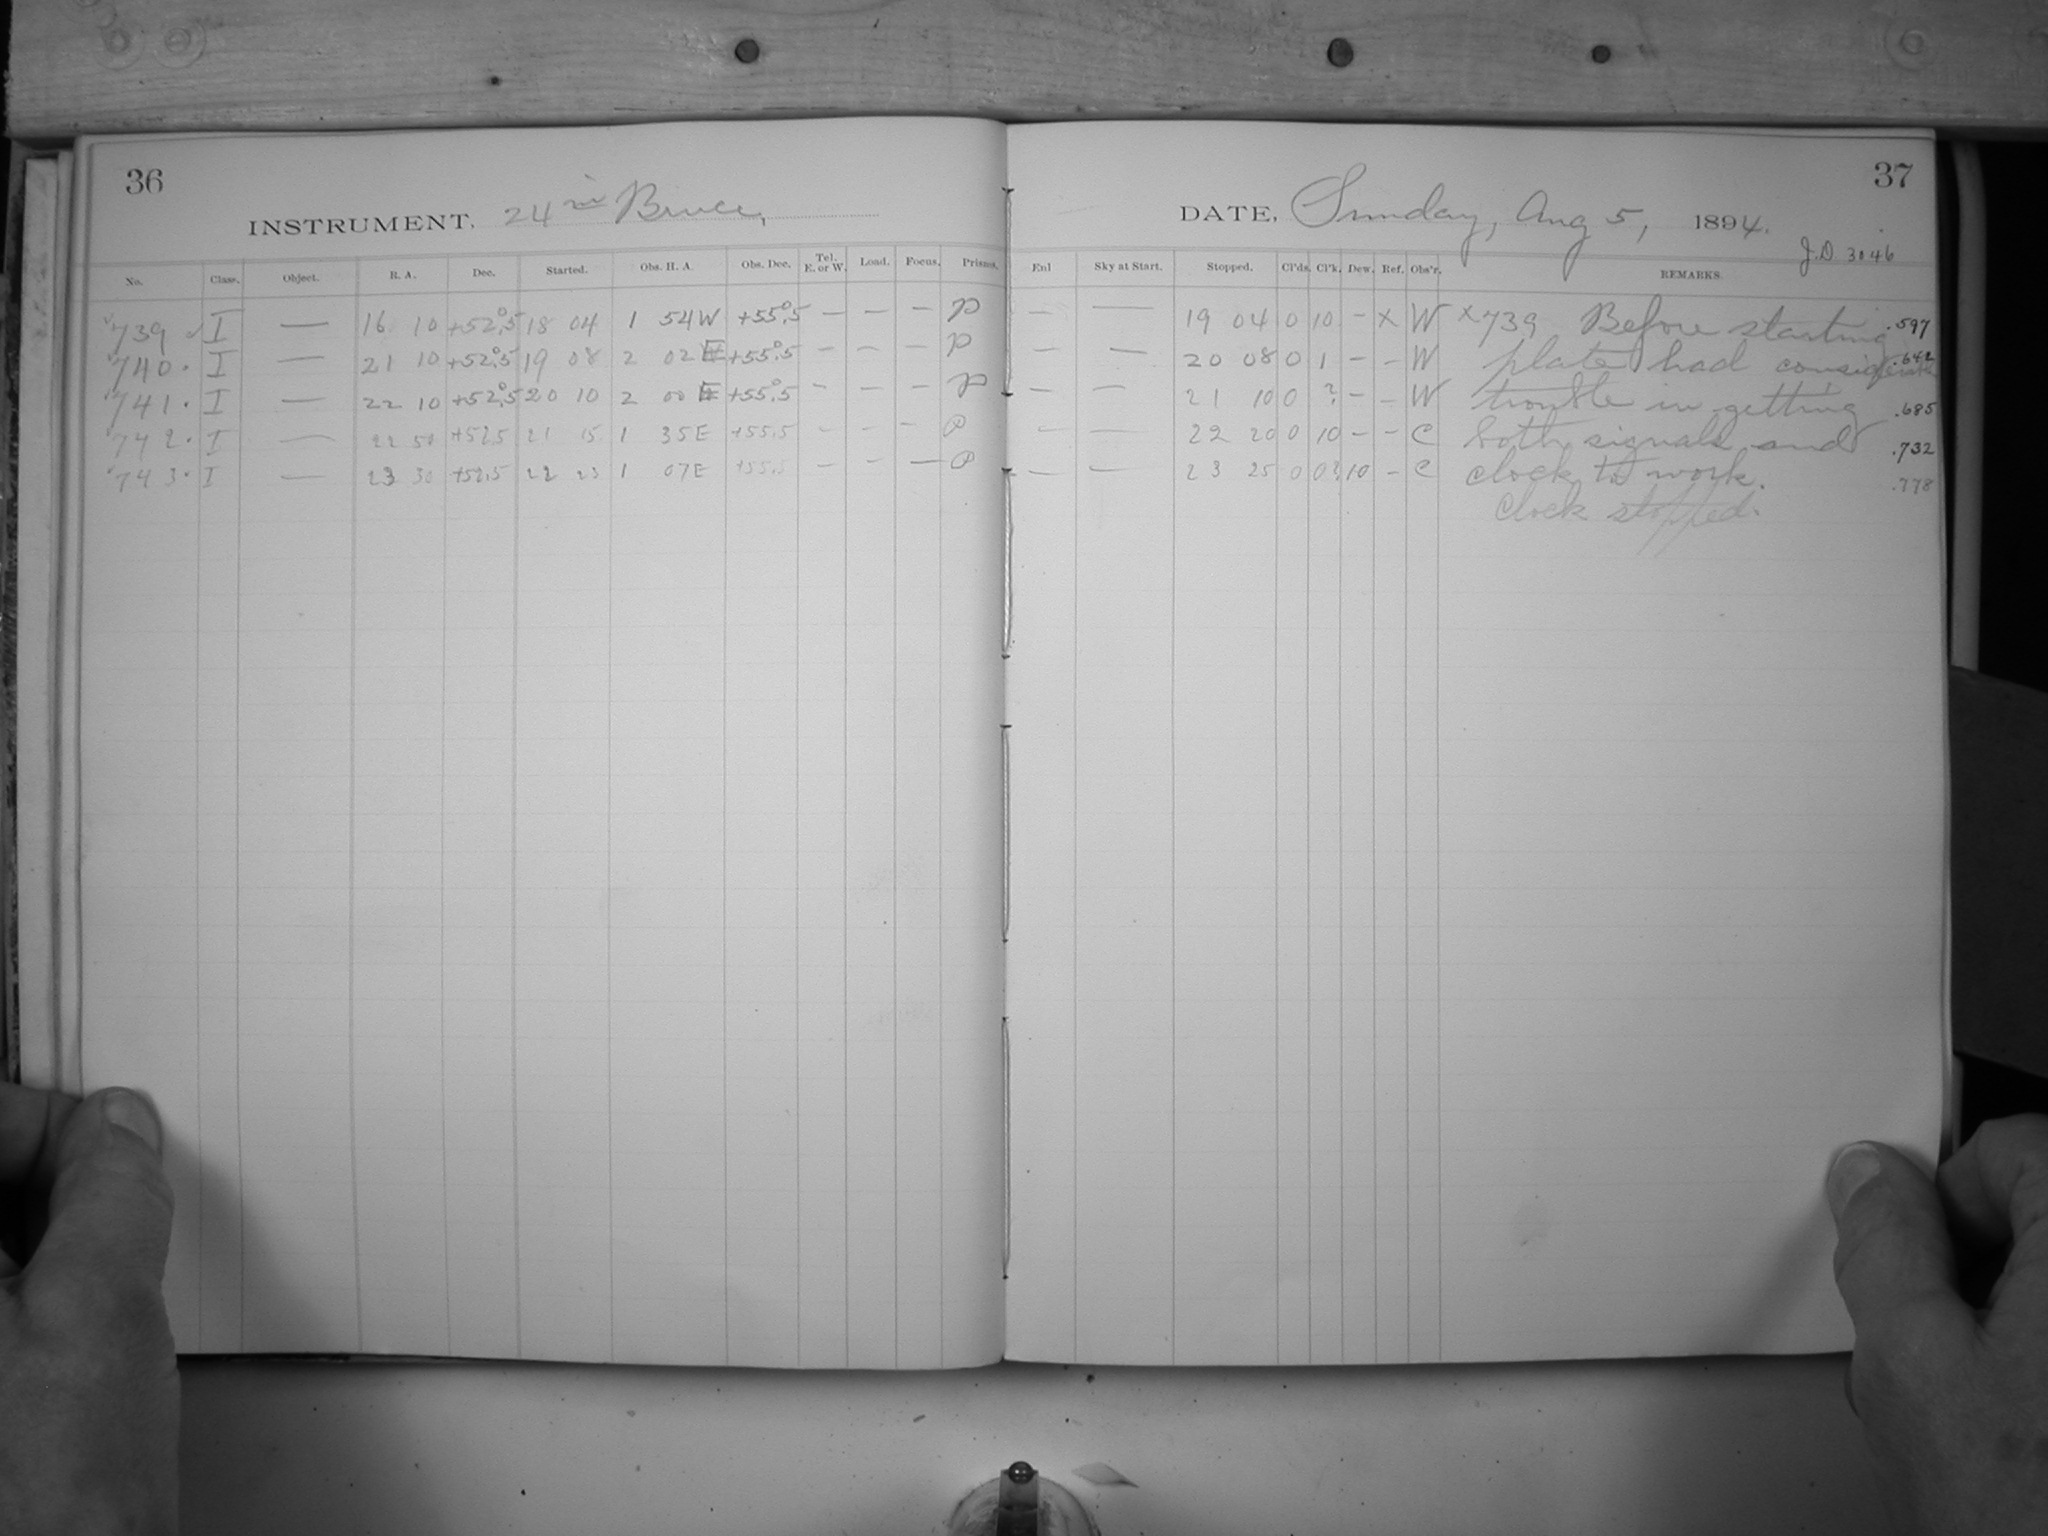 36
INSTRUMENT, 24 in Bruce,
No. Class. Object. R. A. Dec. Started. Obs. H. A. Obs. Dec. Tel. E. or W. Load. Focus. Prisms.
739 I — 16 10 +52°.5 18 04 1 54W +55°.5 — — — P
740. I — 21 10 +52°.5 19 08 2 02E +55°.5 — — — P
741. I — 22 10 +52°.5 20 10 2 00E +55°.5 — — — P
742. I — 22 50 +52.5 21 15 1 35E +55.5 — — — P
743. I — 23 30 +52.5 22 23 1 07E +55.5 — — — P
37
DATE, Sunday, Aug 5, 1894.
J.D 3046
Enl Sky at Start. Stopped. Cl'ds. Cl'k. Dew. Ref. Obs'r. REMARKS.
— — 19 04 0 10 — X W X739 Before starting .597
— — 20 08 0 1 — — W plate had considerable .642
— — 21 10 0 ? — — W trouble in getting .685
— — 22 20 0 10 — — C both signals and .732
— — 23 25 0 0? 10 — C clock to work. .778
Clock stopped.